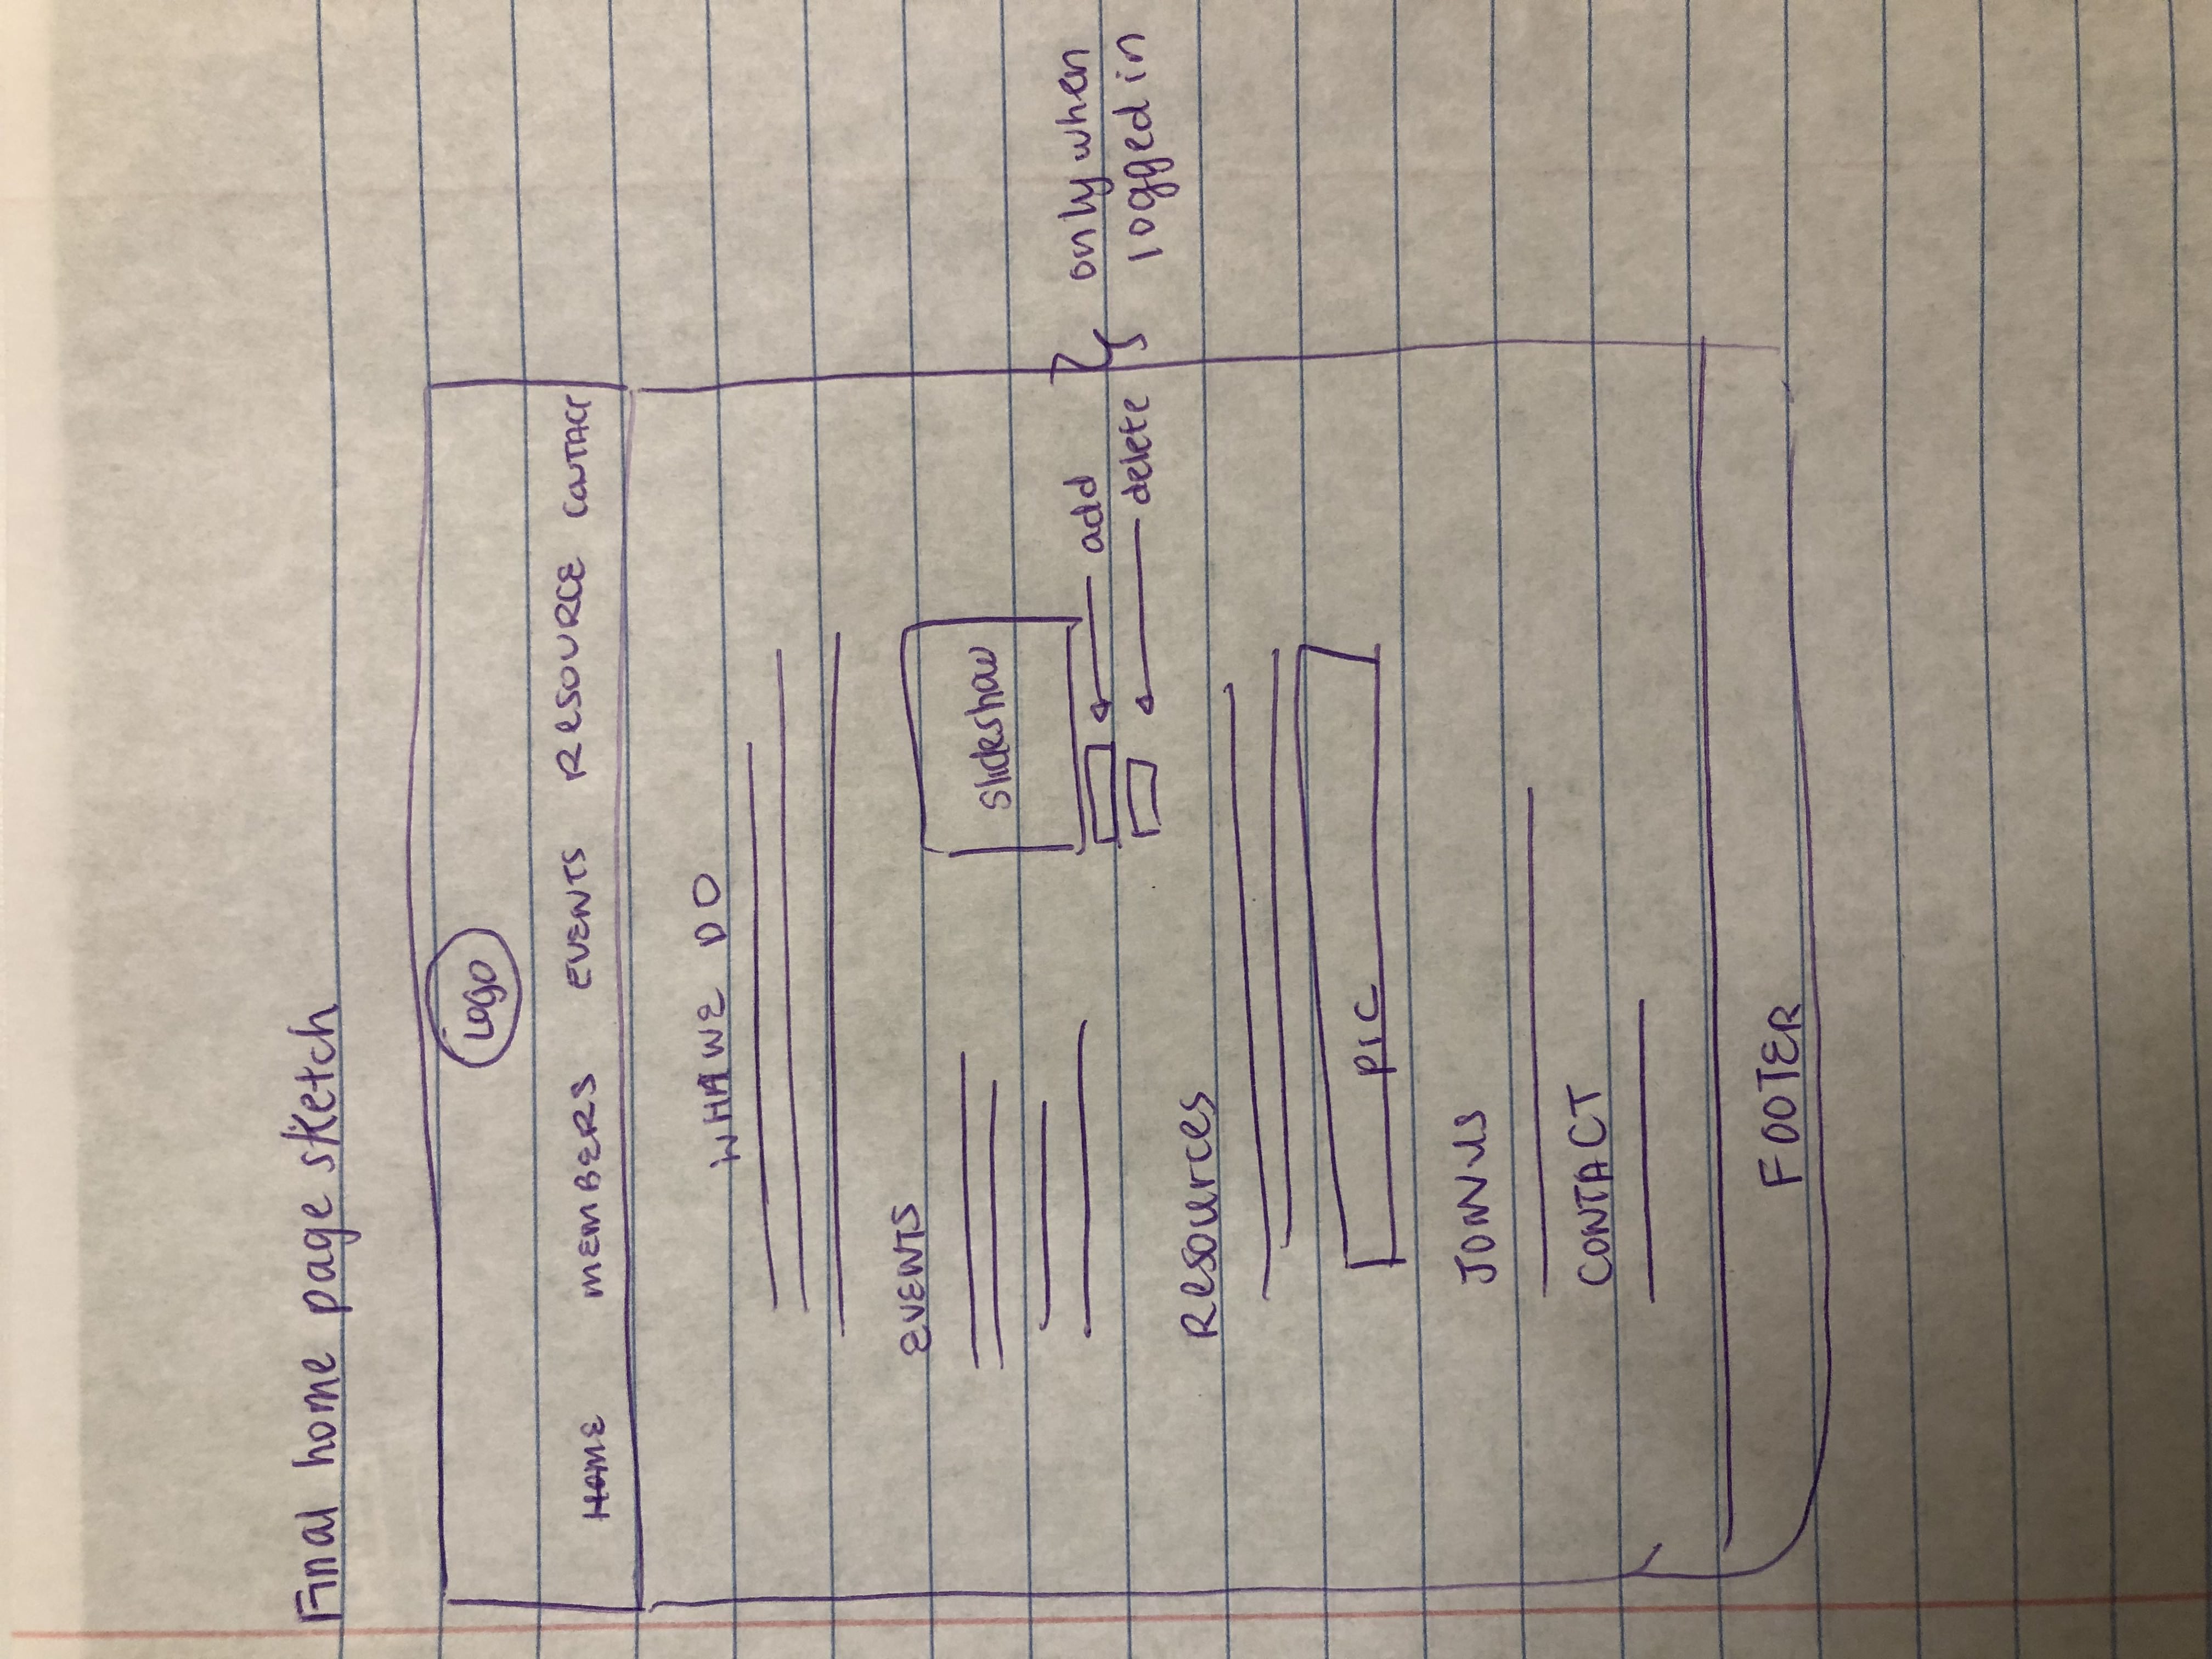 Final home page sketch
Logo
HOME MEMBERS EVENTS RESOURCE CONTACT
WHAT WE DO
EVENTS
Slideshow
add
delete
only when
logged in
Resources
PIC
JOIN US
CONTACT
FOOTER